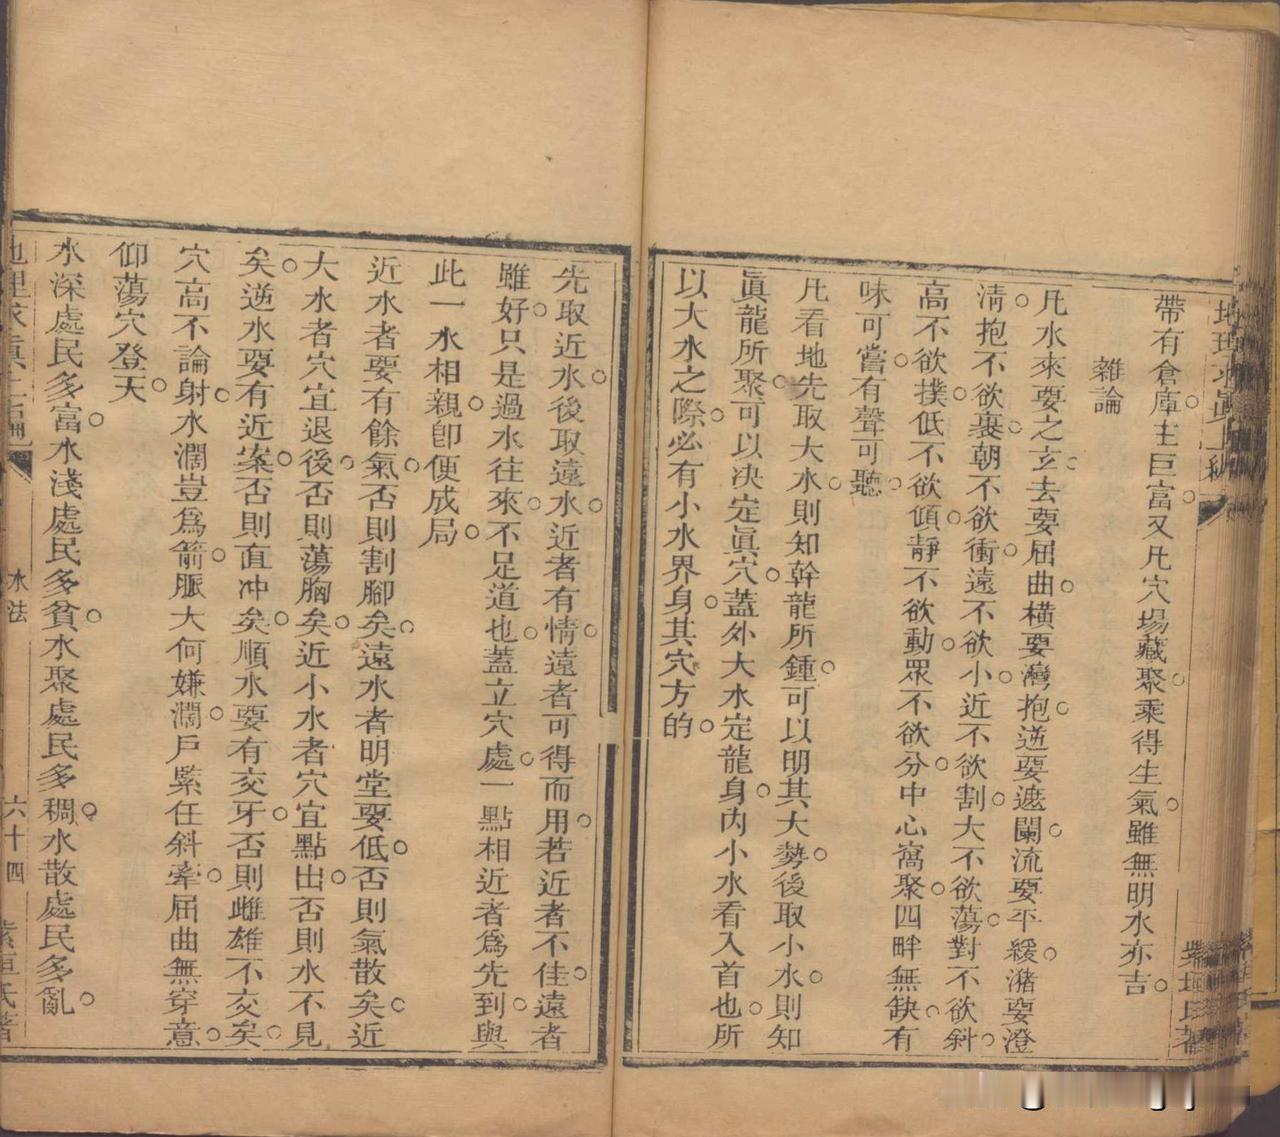 帶有倉庫主巨富又凡穴場藏聚乘得生氣雖無明水亦吉
雜論
凡水來要之玄去要屈曲橫要灣抱逆要遮闌流要平緩瀦要澄
淸抱不欲裹朝不欲衝遠不欲小近不欲割大不欲蕩對不欲斜
高不欲撲低不欲傾靜不欲動眾不欲分中心窩聚四畔無缺有
味可嘗有聲可聽
凡看地先取大水則知幹龍所鍾可以明其大勢後取小水則知
眞龍所聚可以决定眞穴蓋外大水定龍身內小水看入首也所
以大水之際必有小水界身其穴方的
先取近水後取遠水近者有情遠者可得而用若近者不佳遠者
雖好只是過水往來不足道也蓋立穴處一點相近者爲先到與
此一水相親卽便成局
近水者要有餘氣否則割腳矣遠水者明堂要低否則氣散矣近
大水者穴宜退後否則蕩胸矣近小水者穴宜點出否則水不見
矣逆水要有近案否則直冲矣順水要有交牙否則雌雄不交矣
穴高不論射水濶豈爲箭脈大何嫌濶戶緊任斜牽屈曲無穿意
仰蕩穴登天
水深處民多富水淺處民多貧水聚處民多稠水散處民多亂
水法
六十四